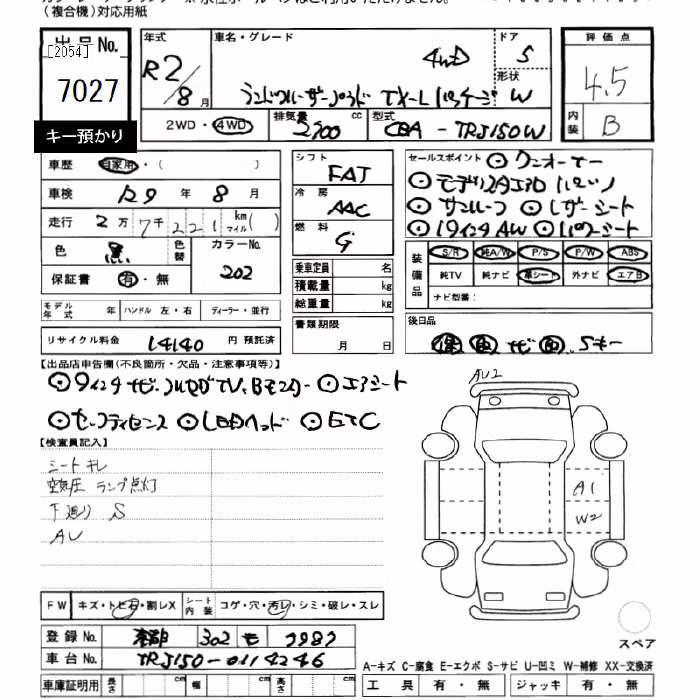 （複合機）対応用紙
出品No.
[2054]
7027
キー預かり
年式
R2/8月
車名・グレード
4WD
ランドクルーザープラド TX-L パッケージ
ドア
5
形状
W
2WD・4WD
排気量
2700 cc
型式
CBA - TRJ150W
評価点
4.5
内装
B
車歴
自家用・（　）
車検
R9 年 8 月
走行
2万7千221 km マイル（　）
色
黒
色替
カラーNo.
202
保証書
有・無
モデル年式 年
ハンドル 左・右
ディーラー・並行
リサイクル料金
14140 円 預託済
シフト
FAT
冷房
AAC
燃料
G
乗車定員 名
積載量 kg
総重量 kg
書類期限
月 日
セールスポイント ◎ワンオーナー
◎モデリスタエアロ
◎サンルーフ ◎レザーシート
◎19インチAW ◎パワーシート
装備品
S/R 純A/W P/S P/W ABS
純TV 純ナビ 革シート 外ナビ エアB
ナビ型番：
後日品
保 取 ナビ Sキー
【出品店申告欄(不良箇所・欠品・注意事項等)】
◎9インチナビ・フルセグTV、Bモニター ◎エアシート
◎セーフティセンス ◎LEDヘッド ◎ETC
【検査員記入】
シートキレ
空気圧 ランプ点灯
下廻り S
AU
AU2
A1
W2
スペア
FW
キズ・トビ石・割レX
シート内装
コゲ・穴・汚レ・シミ・破レ・スレ
登録No.
302 モ
車台No.
TRJ150-0114246
A-キズ C-腐食 E-エクボ S-サビ U-凹ミ W-補修 XX-交換済
車庫証明用 長さ cm 幅 cm 高さ cm
工具 有・無
ジャッキ 有・無